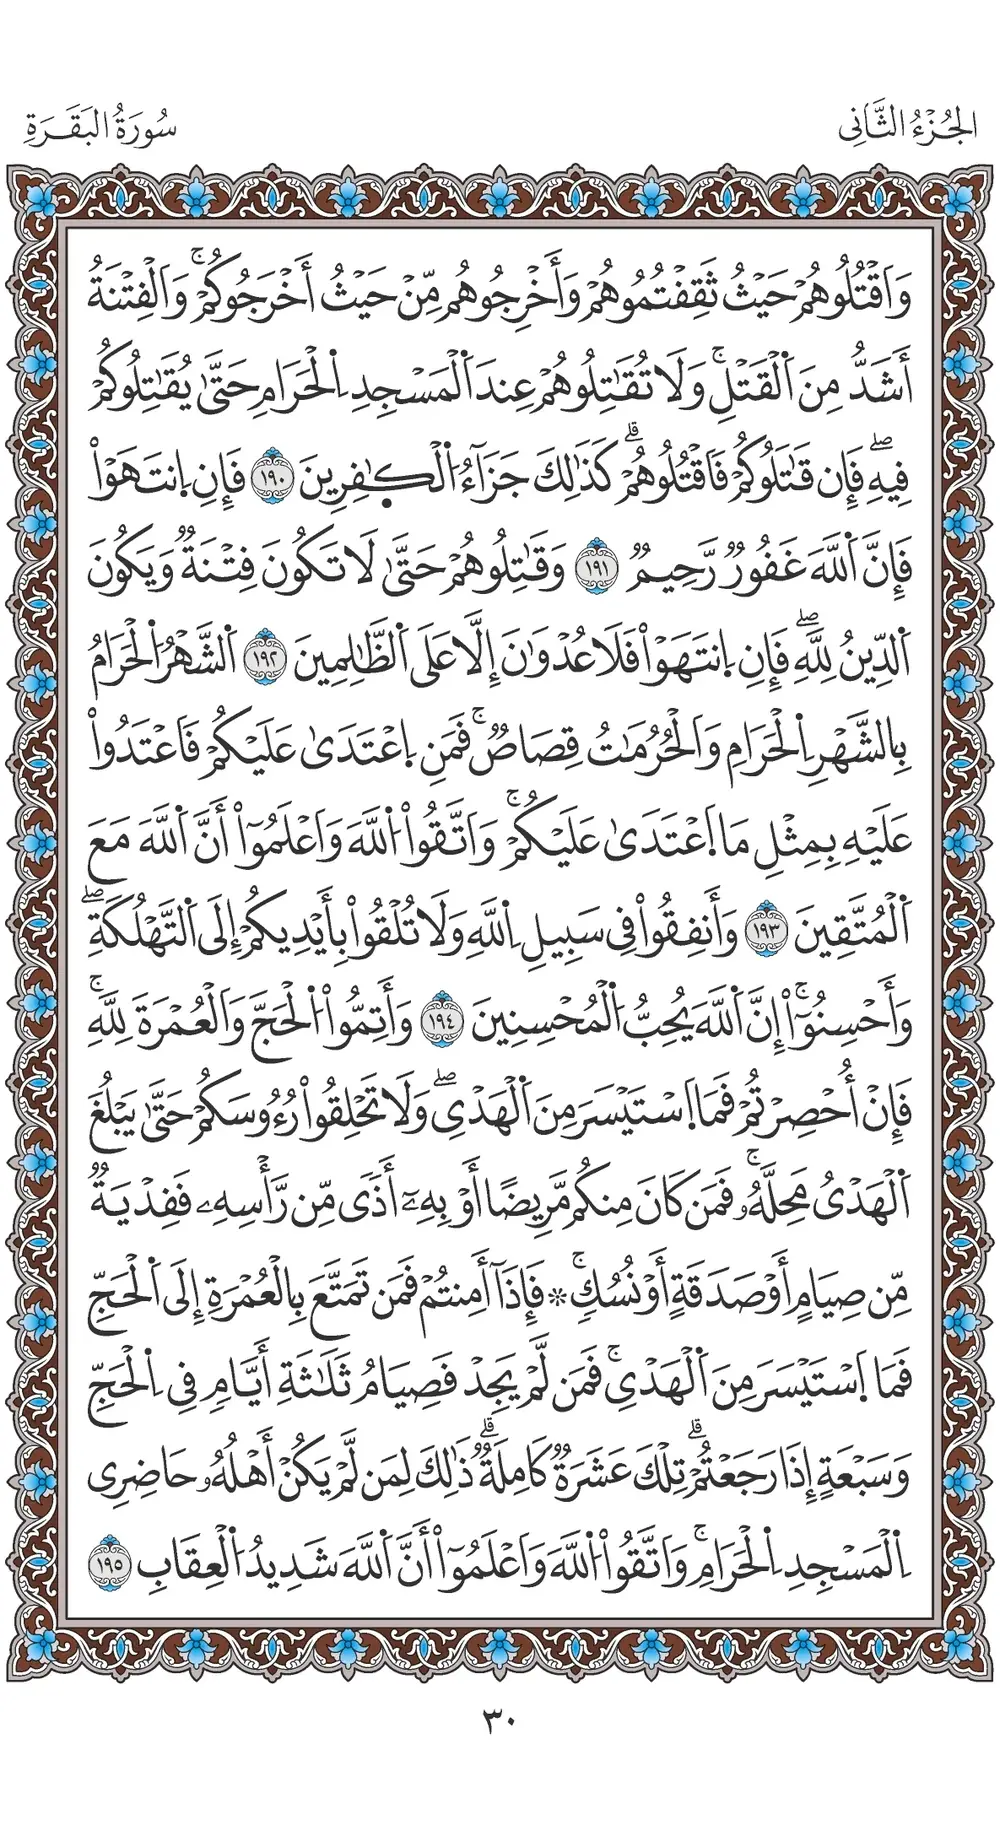 الجُزْءُ الثَّانِي
سُورَةُ البَقَرَةِ
وَاَقْتُلُوهُمْ حَيْثُ ثَقِفْتُمُوهُمْ وَأَخْرِجُوهُم مِّنْ حَيْثُ أَخْرَجُوكُمْۚ وَاَلْفِتْنَةُ
أَشَدُّ مِنَ اَلْقَتْلِۚ وَلَا تُقَٰتِلُوهُمْ عِندَ اَلْمَسْجِدِ اِلْحَرَامِ حَتَّىٰ يُقَٰتِلُوكُمْ
فِيهِۖ فَإِن قَٰتَلُوكُمْ فَاقْتُلُوهُمْۗ كَذَٰلِكَ جَزَآءُ اَلْكَٰفِرِينَ ١٩٠ فَإِنِ اِنتَهَوْاْ
فَإِنَّ اَللَّهَ غَفُورٌ رَّحِيمٌ ١٩١ وَقَٰتِلُوهُمْ حَتَّىٰ لَا تَكُونَ فِتْنَةٌ وَيَكُونَ
اَلدِّينُ لِلَّهِۖ فَإِنِ اِنتَهَوْاْ فَلَا عُدْوَٰنَ إِلَّا عَلَى اَلظَّٰلِمِينَ ١٩٢ اَلشَّهْرُ اُلْحَرَامُ
بِالشَّهْرِ اِلْحَرَامِ وَالْحُرُمَٰتُ قِصَاصٌۚ فَمَنِ اِعْتَدَىٰ عَلَيْكُمْ فَاعْتَدُواْ
عَلَيْهِ بِمِثْلِ مَا اَعْتَدَىٰ عَلَيْكُمْۚ وَاتَّقُواْ اُللَّهَ وَاعْلَمُوٓاْ أَنَّ اَللَّهَ مَعَ
اَلْمُتَّقِينَ ١٩٣ وَأَنفِقُواْ فِي سَبِيلِ اِللَّهِ وَلَا تُلْقُواْ بِأَيْدِيكُمْ إِلَى اَلتَّهْلُكَةِۖ
وَأَحْسِنُوٓاْۚ إِنَّ اَللَّهَ يُحِبُّ اُلْمُحْسِنِينَ ١٩٤ وَأَتِمُّواْ اُلْحَجَّ وَالْعُمْرَةَ لِلَّهِۚ
فَإِنْ أُحْصِرْتُمْ فَمَا اَسْتَيْسَرَ مِنَ اَلْهَدْيِۖ وَلَا تَحْلِقُواْ رُءُوسَكُمْ حَتَّىٰ يَبْلُغَ
اَلْهَدْيُ مَحِلَّهُۥۚ فَمَن كَانَ مِنكُم مَّرِيضًا أَوْ بِهِۦٓ أَذًى مِّن رَّأْسِهِۦ فَفِدْيَةٌ
مِّن صِيَامٍ أَوْ صَدَقَةٍ أَوْ نُسُكٍۚ ۞ فَإِذَآ أَمِنتُمْ فَمَن تَمَتَّعَ بِالْعُمْرَةِ إِلَى اَلْحَجِّ
فَمَا اَسْتَيْسَرَ مِنَ اَلْهَدْيِۚ فَمَن لَّمْ يَجِدْ فَصِيَامُ ثَلَٰثَةِ أَيَّامٍ فِي اِلْحَجِّ
وَسَبْعَةٍ إِذَا رَجَعْتُمْۗ تِلْكَ عَشَرَةٌ كَامِلَةٌۗ ذَٰلِكَ لِمَن لَّمْ يَكُنْ أَهْلُهُۥ حَاضِرِي
اِلْمَسْجِدِ اِلْحَرَامِۚ وَاتَّقُواْ اُللَّهَ وَاعْلَمُوٓاْ أَنَّ اَللَّهَ شَدِيدُ اُلْعِقَابِ ١٩٥
٣٠